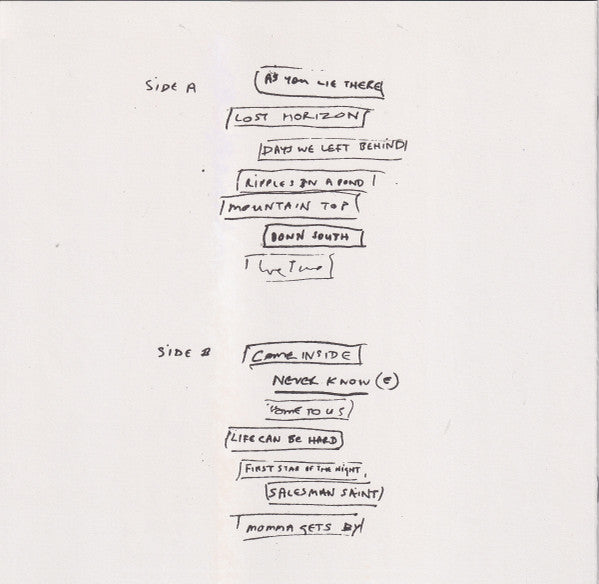 SIDE A
AS YOU LIE THERE
LOST HORIZON
DAYS WE LEFT BEHIND
RIPPLES IN A POND
MOUNTAIN TOP
DOWN SOUTH
We Two
SIDE B
COME INSIDE
NEVER KNOW (E)
HOME TO US
LIFE CAN BE HARD
FIRST STAR OF THE NIGHT
SALESMAN SAINT
MOMMA GETS BY